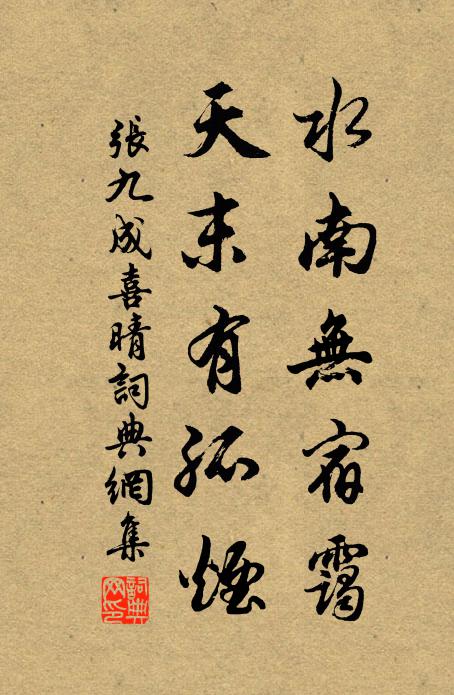 水南無宿靄
天末有孤煙
張九成喜晴詞典網集
詞典網印